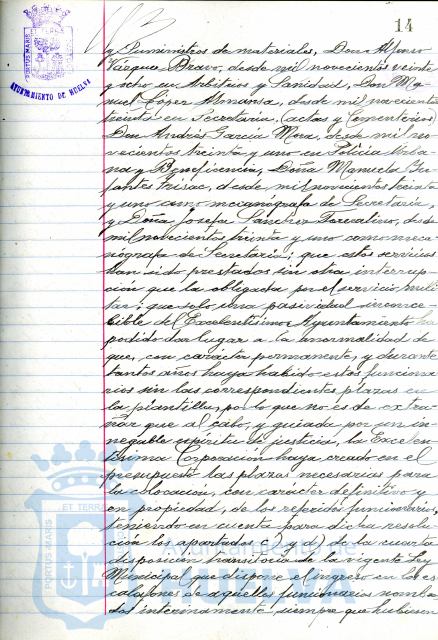 14
PORTUS MARIS ET TERRAE
AYUNTAMIENTO DE HUELVA
y Suministros de materiales, Don Alfonso
Vázquez Bravo, desde mil novecientos veinte
y ocho en Arbitrios y Sanidad, Don Ma-
nuel López Almansa, desde mil novecientos
treinta en Secretaría, (actas y Cementerios)
Don Andrés García Mora, desde mil no-
vecientos treinta y uno en Policía Urba-
na y Beneficencia, Doña Manuela In-
fantes desde mil novecientos treinta
y uno como mecanógrafa de Secretaría,
y Doña Josefa Sánchez desde
mil novecientos treinta y uno como meca-
nógrafa de Secretaría; que estos servicios
han sido prestados sin otra interrup-
ción que la obligada por el servicio mili-
tar; que solo una pasividad inconce-
bible del Excelentísimo Ayuntamiento ha
podido dar lugar a la anormalidad de
que, con carácter permanente, y durante
tantos años haya habido estos funciona-
rios sin las correspondientes plazas en
la plantilla, por lo que no es de extra-
ñar que al cabo, y guiada por un in-
negable espíritu de justicia, la Excelen-
tísima Corporación haya creado en el
presupuesto las plazas necesarias para
la colocación, con carácter definitivo y
en propiedad, de los referidos funcionarios,
teniendo en cuenta para dicha resolu-
ción los apartados c) y d) de la cuarta
disposición transitoria de la vigente Ley
Municipal que dispone el ingreso en los es-
calafones de aquellos funcionarios nombra-
dos interinamente siempre que hubiesen
PORTUS MARIS ET TERRAE
Ayuntamiento de
HUELVA